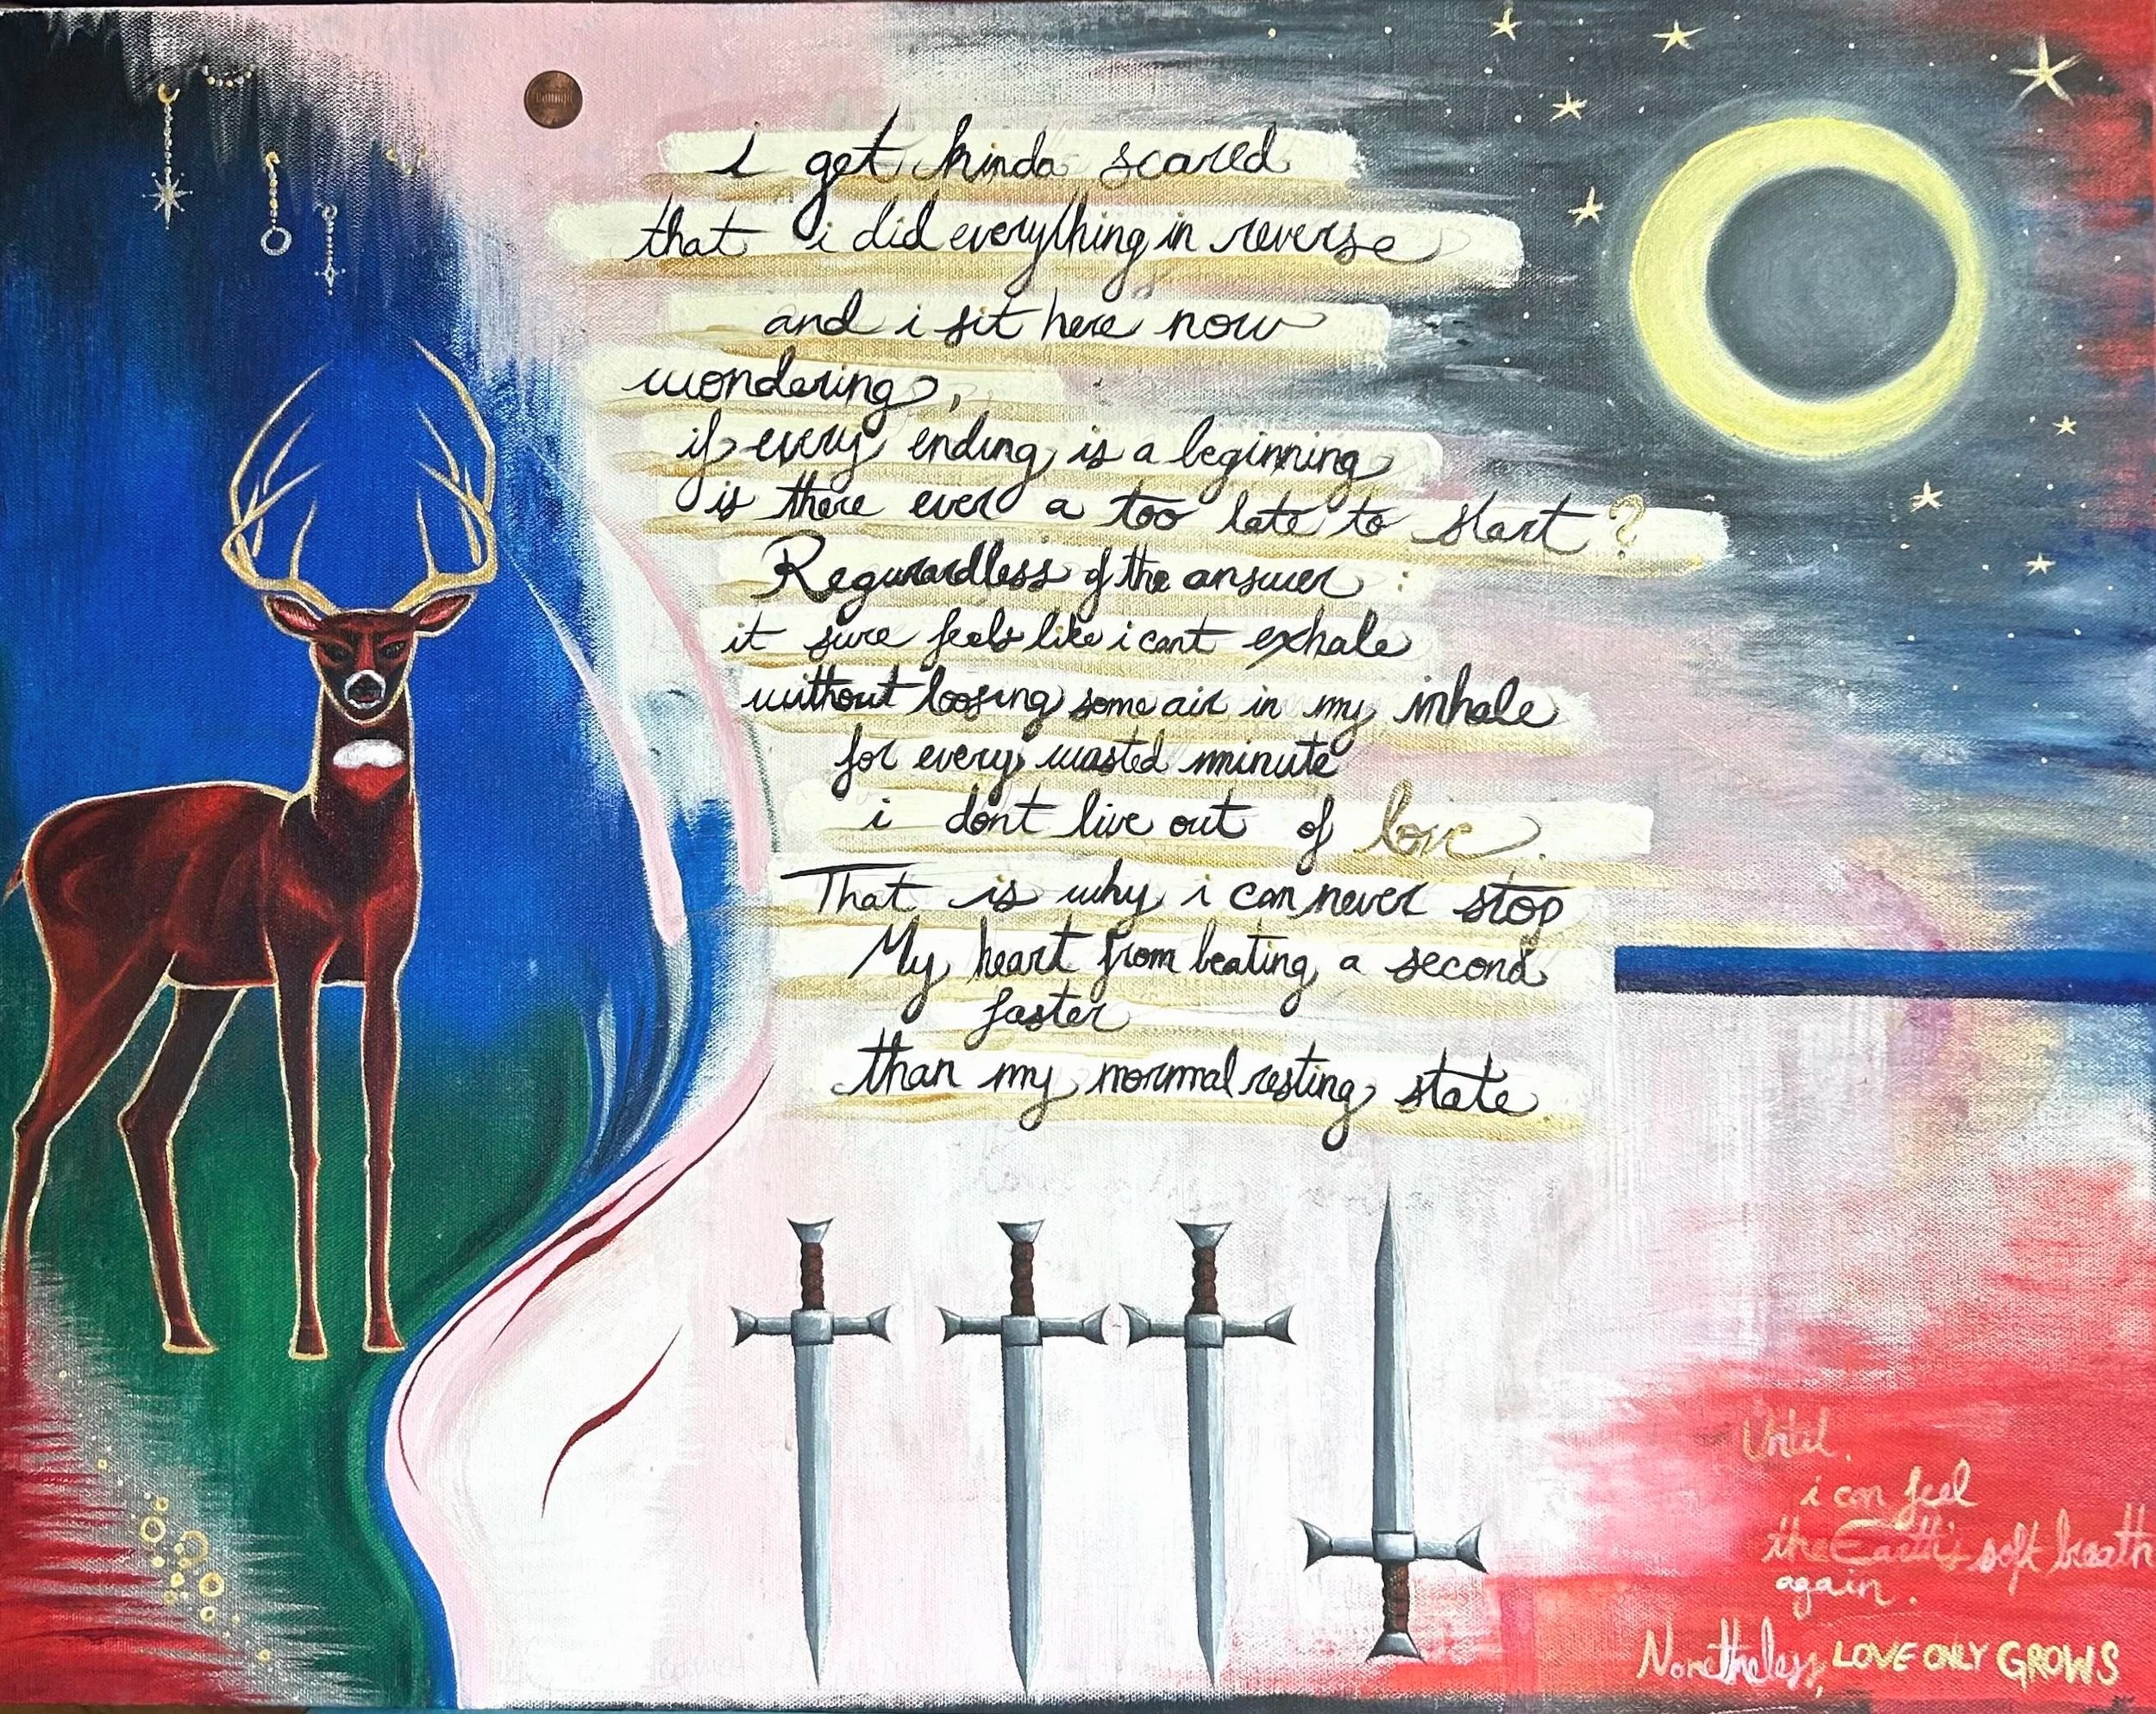 i get kinda scared
that i did everything in reverse
and i sit here now
wondering,
if every ending is a beginning
is there ever a too late to start ?
Reguardless of the answer :
it sure feels like i cant exhale
without loosing some air in my inhale
for every wasted minute
i dont live out of love.
That is why i can never stop
My heart from beating a second
faster
than my normal resting state.
Until.
i can feel
the Earth's soft breath
again.
Nonetheless, LOVE ONLY GROWS